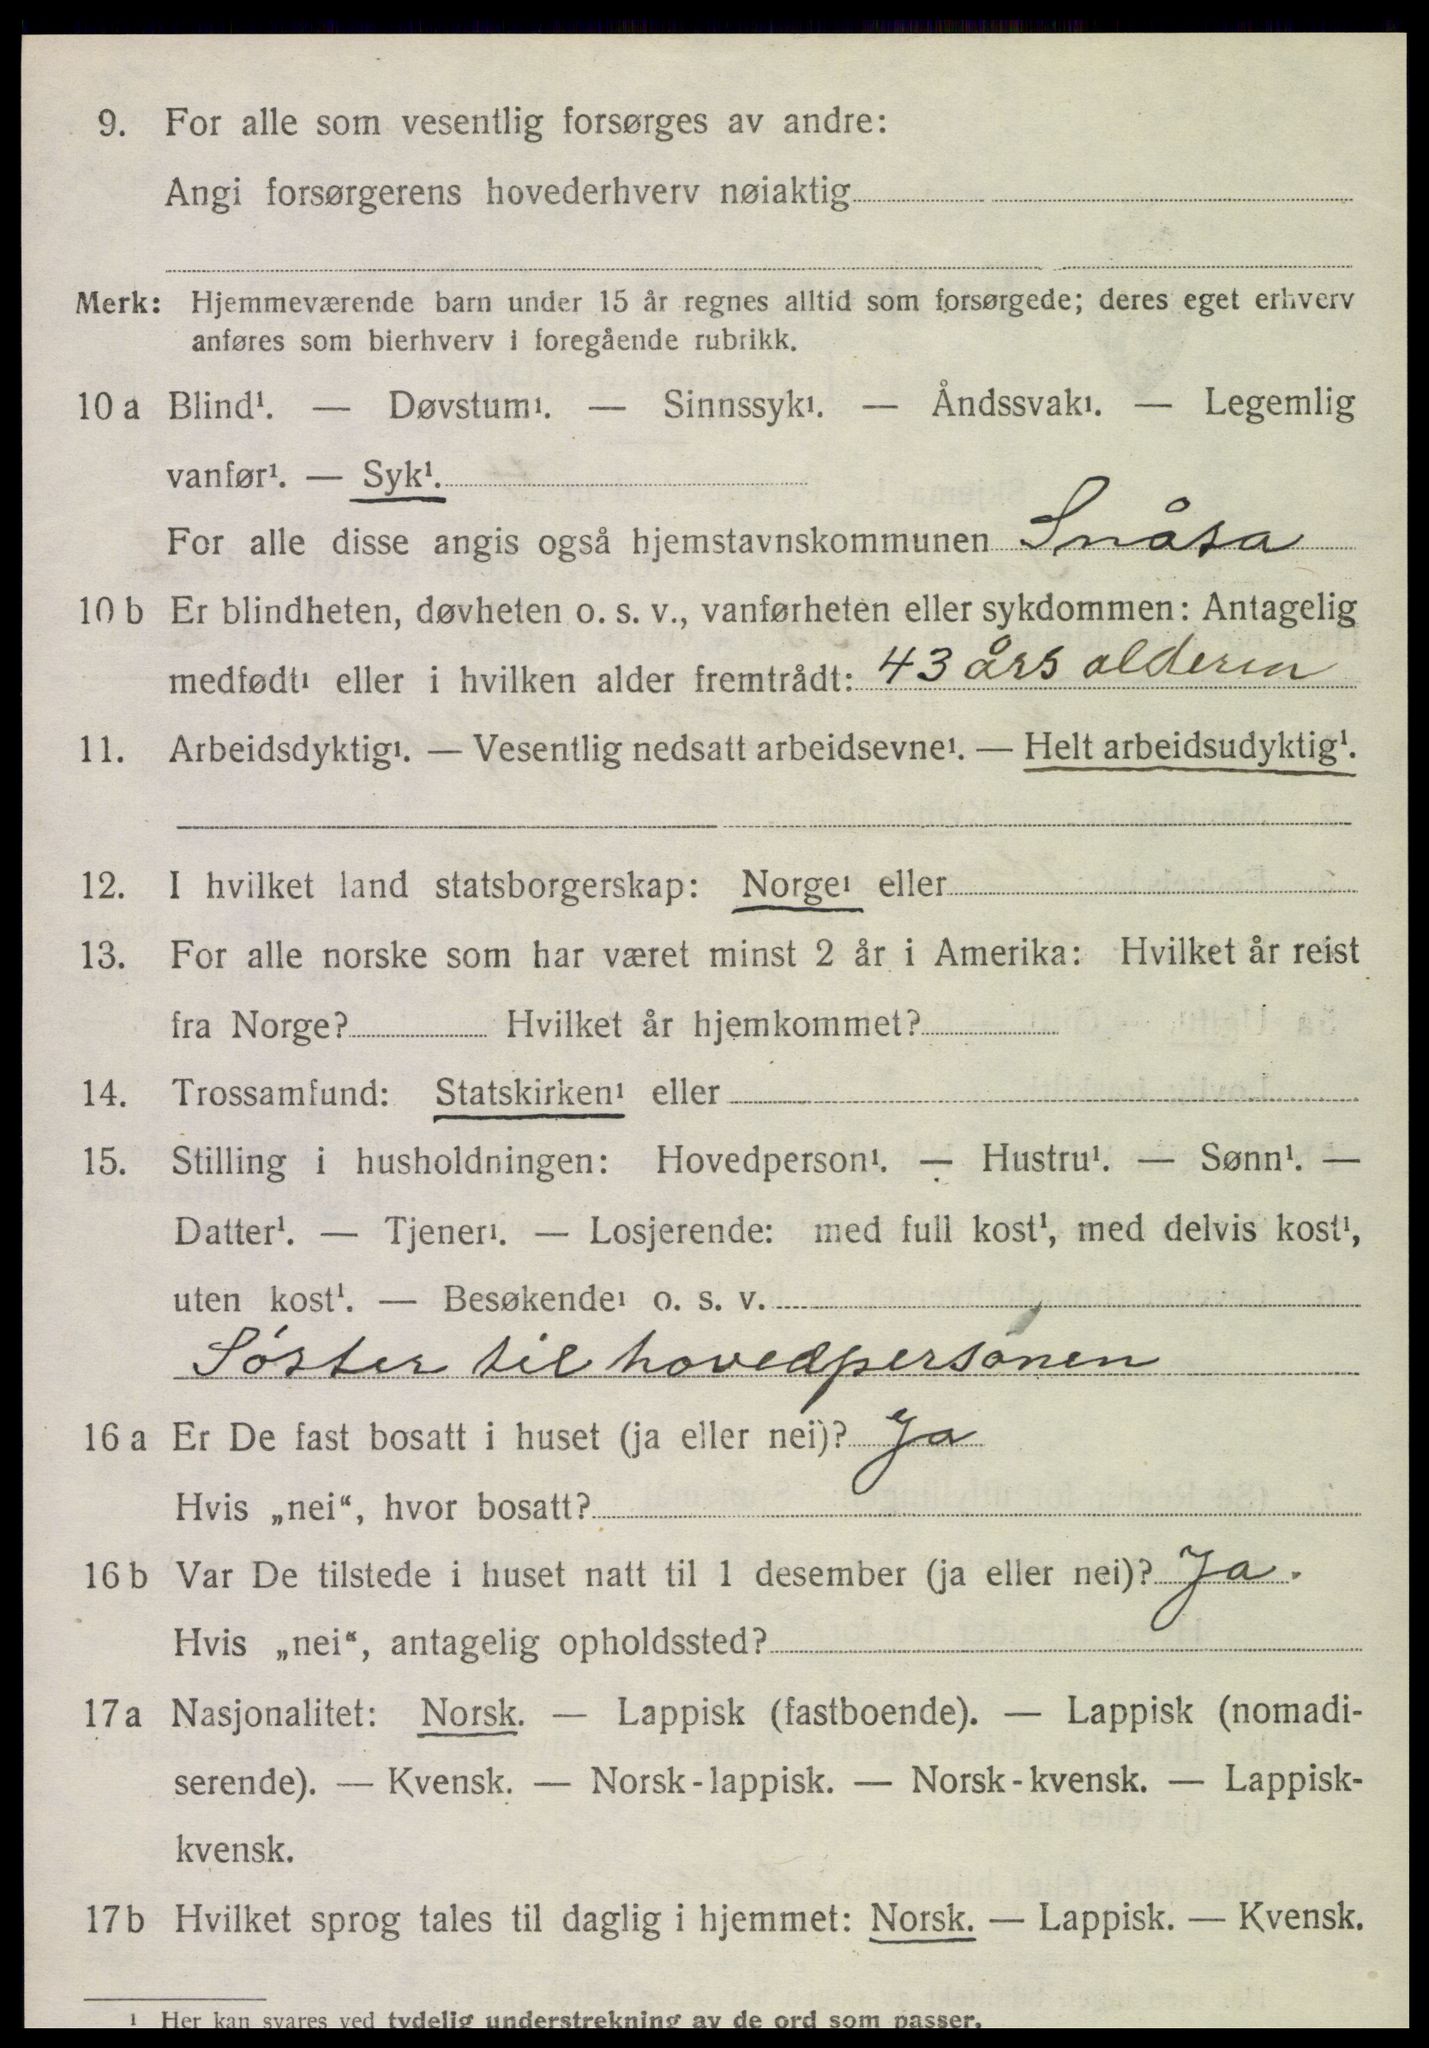 9. For alle som vesentlig forsørges av andre:
Angi forsørgerens hovederhverv nøiaktig
Merk: Hjemmeværende barn under 15 år regnes alltid som forsørgede; deres eget erhverv
anføres som bierhverv i foregående rubrikk.
10 a Blind¹. — Døvstum¹. — Sinnssyk¹. — Åndssvak¹. — Legemlig
vanfør¹. — Syk¹.
For alle disse angis også hjemstavnskommunen Snåsa
10 b Er blindheten, døvheten o. s. v., vanførheten eller sykdommen: Antagelig
medfødt¹ eller i hvilken alder fremtrådt: 43 års alderen
11. Arbeidsdyktig¹. — Vesentlig nedsatt arbeidsevne¹. — Helt arbeidsudyktig¹.
12. I hvilket land statsborgerskap: Norge¹ eller
13. For alle norske som har været minst 2 år i Amerika: Hvilket år reist
fra Norge? Hvilket år hjemkommet?
14. Trossamfund: Statskirken¹ eller
15. Stilling i husholdningen: Hovedperson¹. — Hustru¹. — Sønn¹. —
Datter¹. — Tjener¹. — Losjerende: med full kost¹, med delvis kost¹,
uten kost¹. — Besøkende¹ o. s. v.
Söster til hovedpersonen
16 a Er De fast bosatt i huset (ja eller nei)? Ja
Hvis „nei“, hvor bosatt?
16 b Var De tilstede i huset natt til 1 desember (ja eller nei)? Ja.
Hvis „nei“, antagelig opholdssted?
17 a Nasjonalitet: Norsk. — Lappisk (fastboende). — Lappisk (nomadi-
serende). — Kvensk. — Norsk-lappisk. — Norsk-kvensk. — Lappisk-
kvensk.
17 b Hvilket sprog tales til daglig i hjemmet: Norsk. — Lappisk. — Kvensk.
¹ Her kan svares ved tydelig understrekning av de ord som passer.